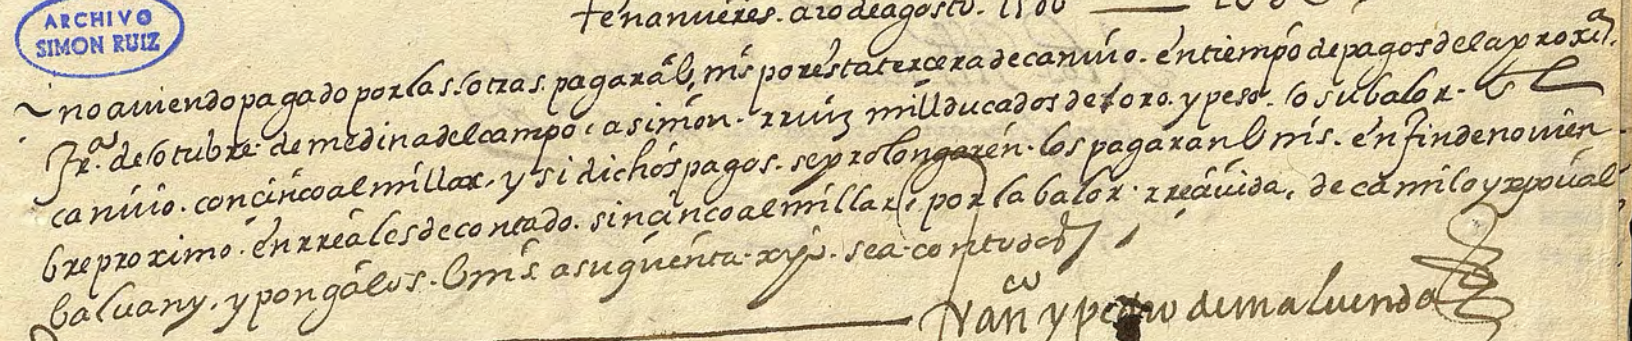 ARCHIVO
SIMON RUIZ
† en anveres. a 20 de agosto. 15
no aviendo pagado por las otras. pagarā v. ms por esta tercera de canvio. en tiempo de pagos de la proxa.
fra. de otubre. de medina del campo. a simon. rruiz mill ducados de e oro. y peso. o su balor.
canvio. con cinco al millar. y si dichos pagos. se prolongaren. los pagaran v ms. en fin de novien
bre proximo. en rreales de contado. sin cinco al millar. por la balor. rrecivida. de camilo y xpoval
balvany. y pongalos. v ms a su quenta. xpo. sea con todos
Frco y pedro de maluenda